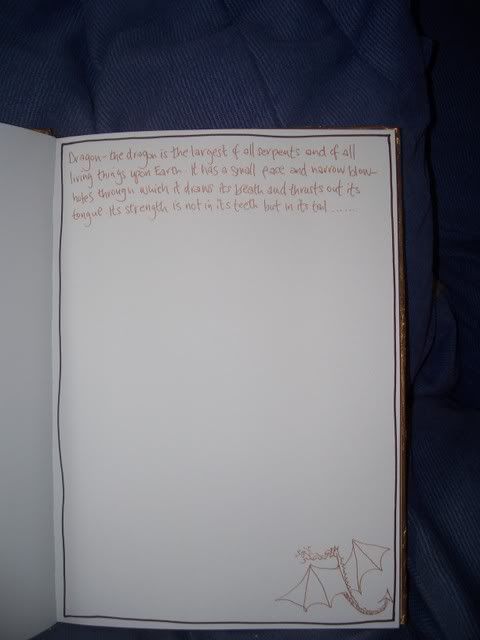 Dragon - the dragon is the largest of all serpents and of all
living things upon Earth. It has a small face and narrow blow-
holes through which it draws its breath and thrusts out its
tongue. Its strength is not in its teeth but in its tail ......